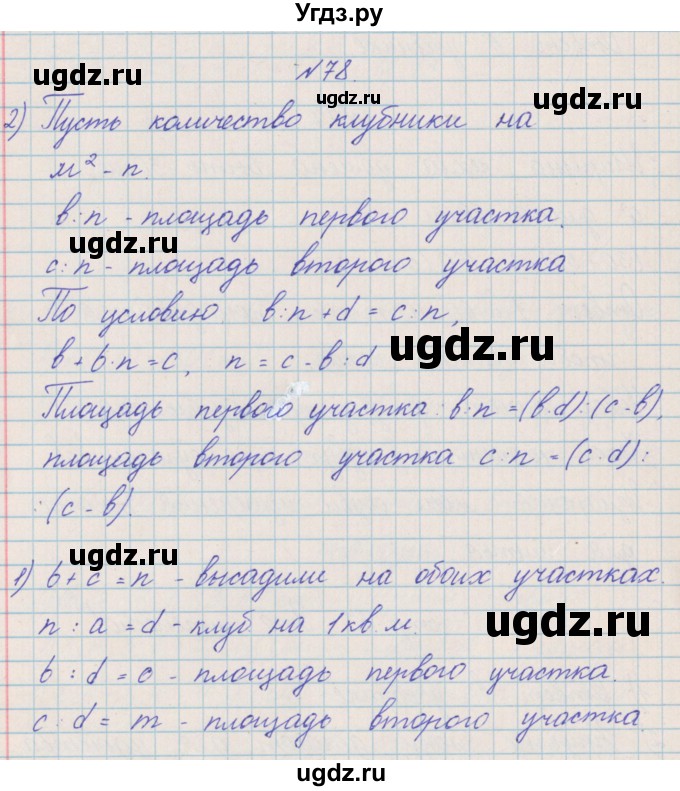 Угдз.ру
№78.
ugdz.ru ugdz.ru ugdz.ru
2) Пусть количество клубники на
м² - n.
в:n - площадь первого участка.
ugdz.ru
с:n - площадь второго участка
По условию в:n + d = с:n,
ugdz.ru
в + b·n = с, n = с - в : d
Площадь первого участка: в:n = (в·d) : (с - в),
ugdz.ru
площадь второго участка с:n = (с·d) :
: (с - в).
ugdz.ru ugdz.ru
1) b + с = n - высадили на обоих участках.
n : a = d - клуб на 1 кв м.
ugdz.ru
b : d = с - площадь первого участка.
с : d = m - площадь второго участка.
ugdz.ru
ugdz.ru